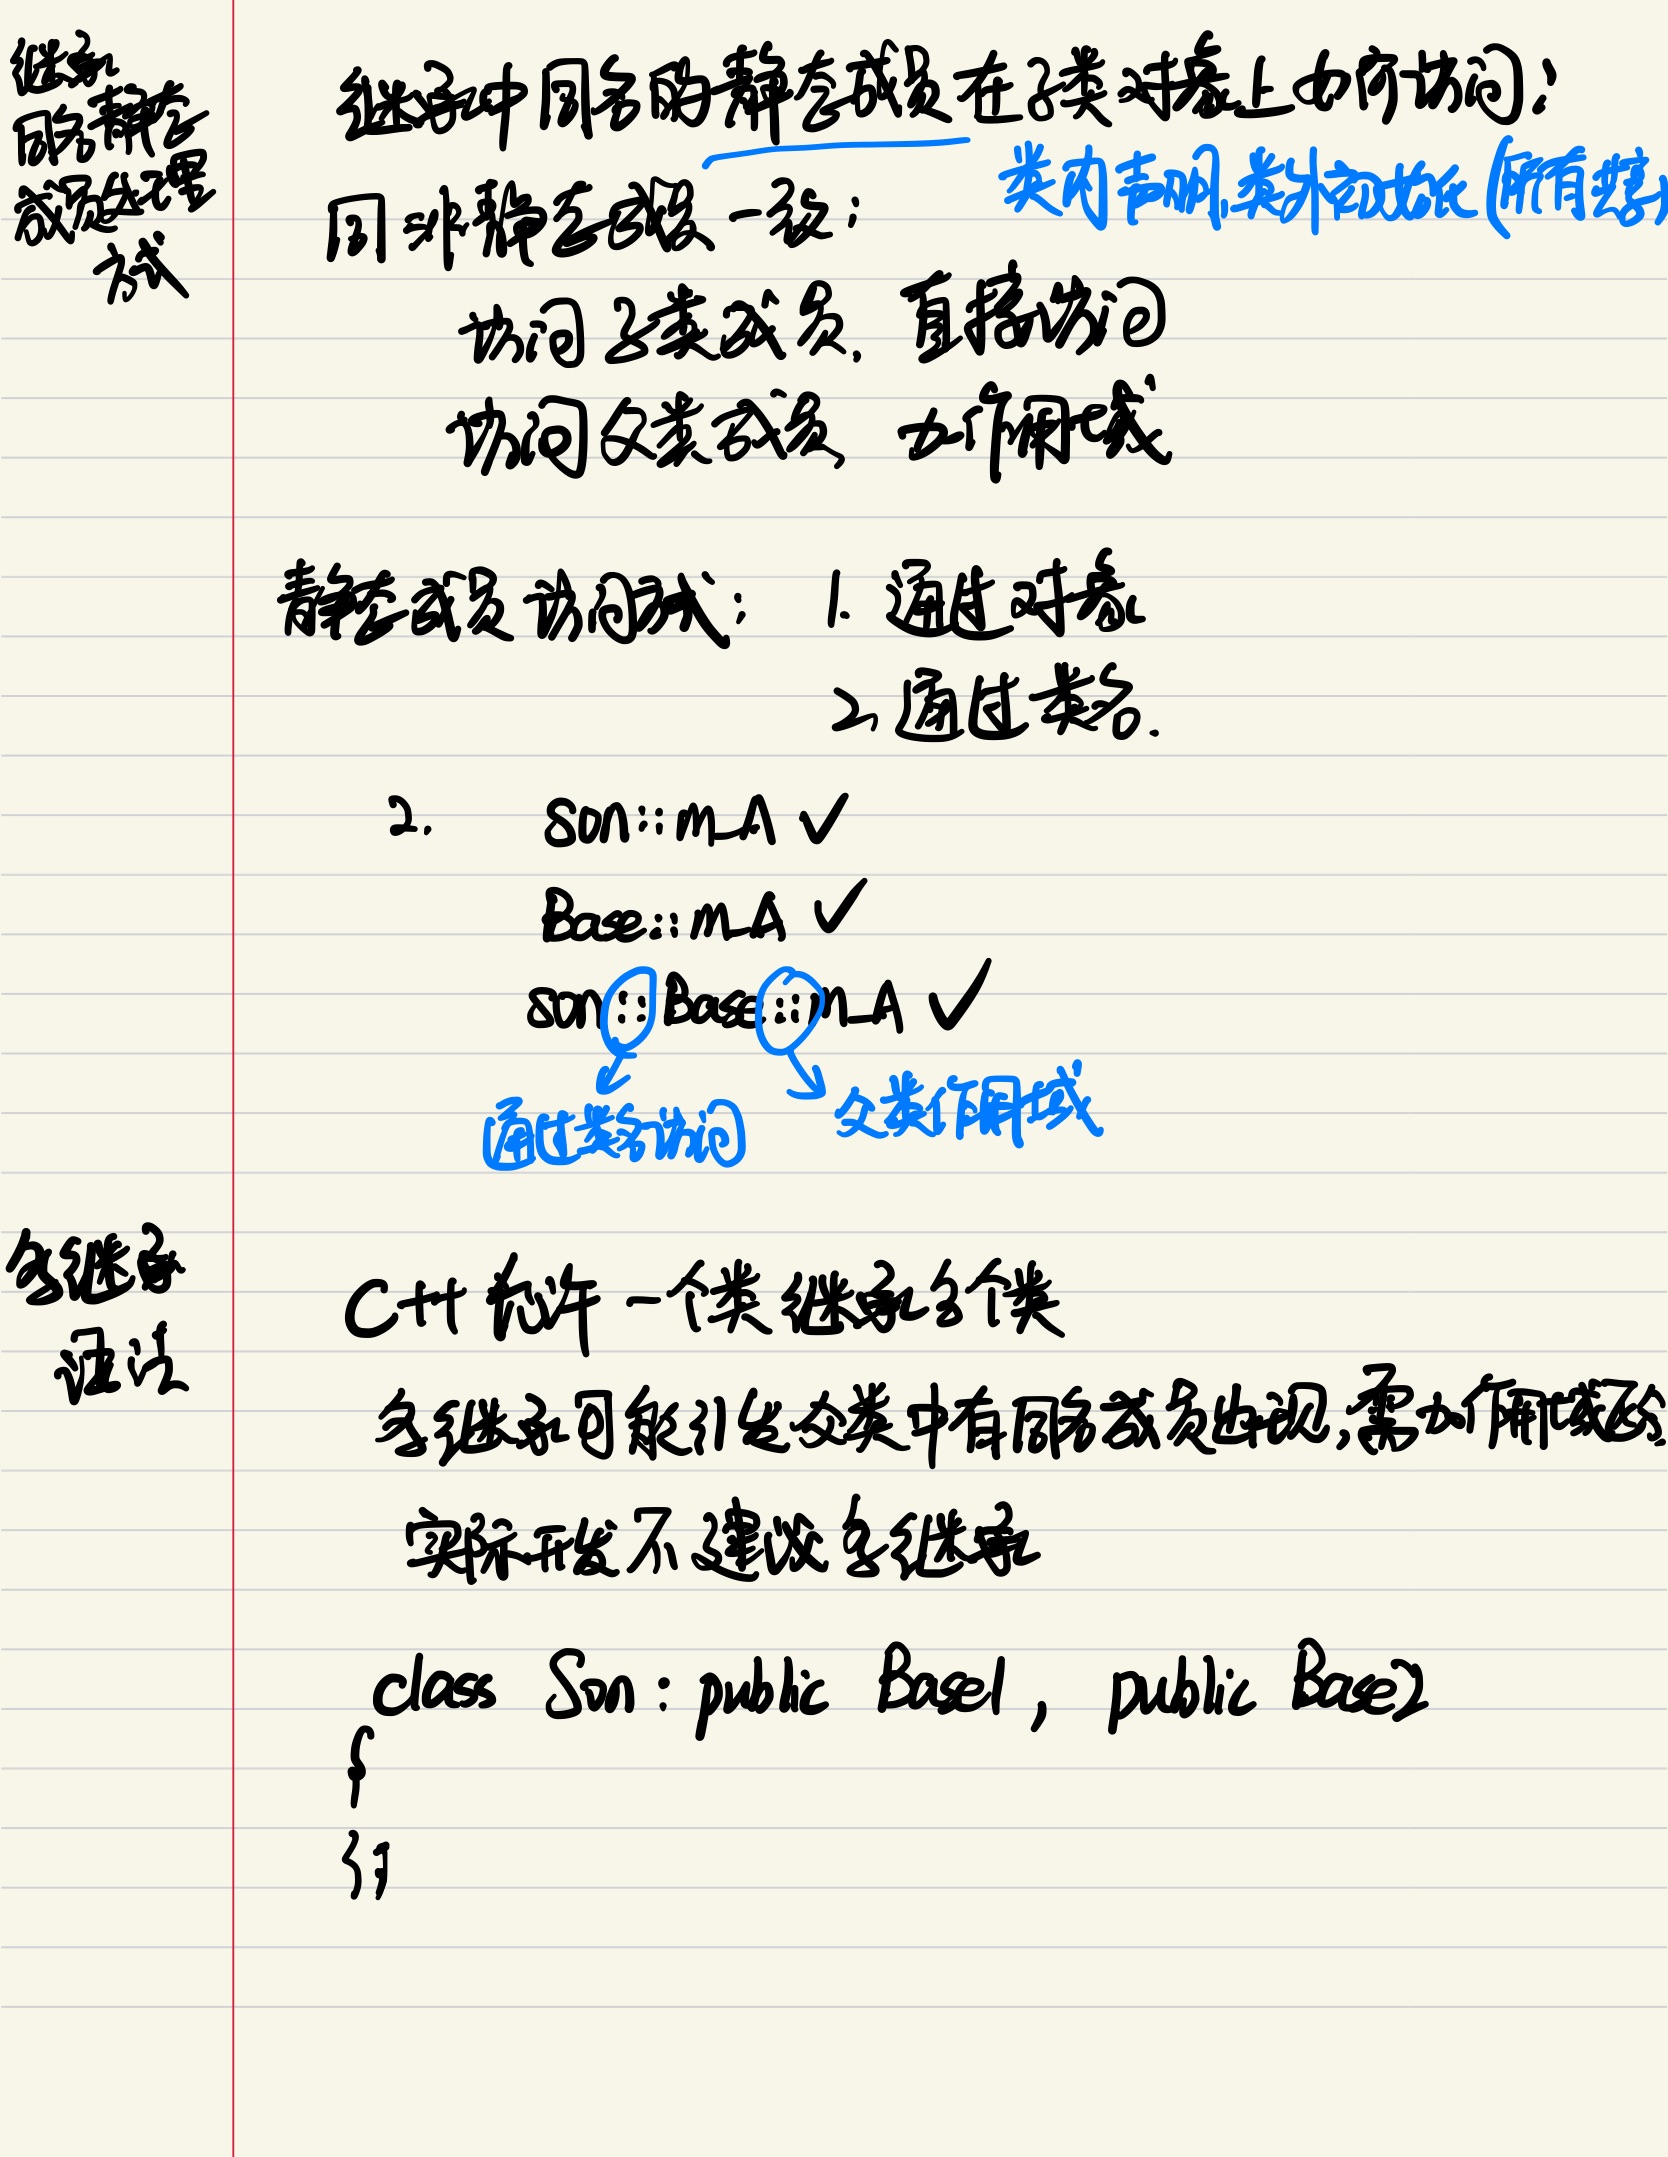 继承
同名静态
成员处理
方式
继承中同名的静态成员在子类对象上如何访问?
类内声明,类外初始化(所有共享)
同非静态成员一致:
访问子类成员, 直接访问
访问父类成员, 加作用域
静态成员访问方式: 1. 通过对象
2. 通过类名.
2. Son::m_A ✓
Base::m_A ✓
son::Base::m_A ✓
通过类名访问 父类作用域
多继承
语法
C++ 允许一个类继承多个类
多继承可能引发父类中有同名成员出现,需加作用域区分
实际开发不建议多继承
class Son : public Base1, public Base2
{
};